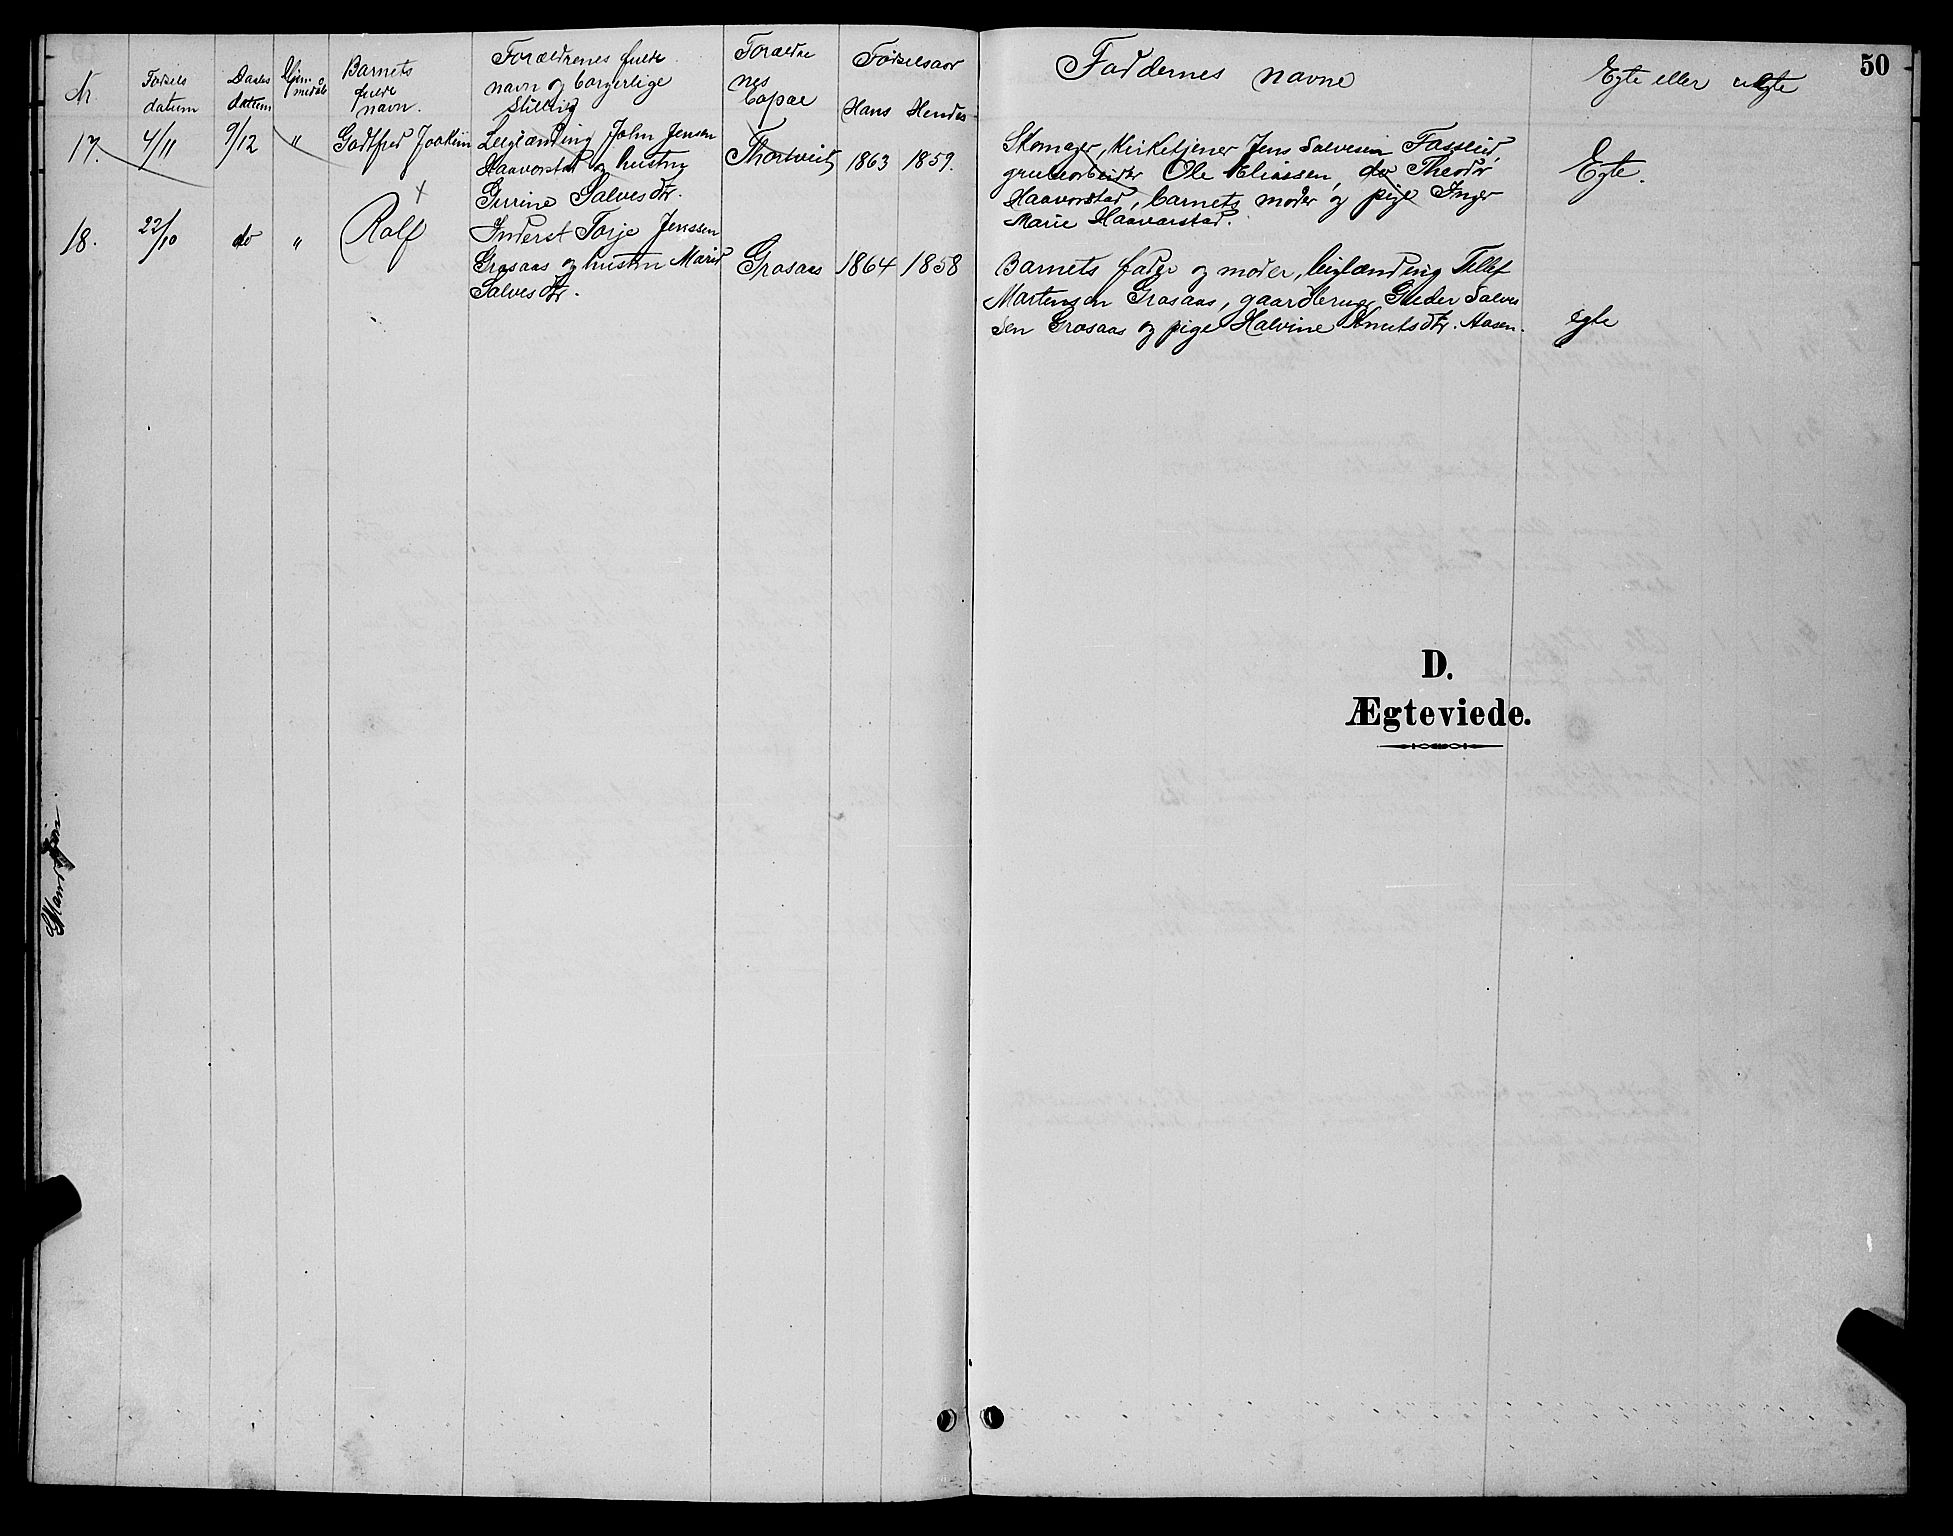 50
Nr
Fødsels datum
Daabs datum
Barnets fulde navn.
Forældrenes fulde navn og borgerlige Stilling
Forældrenes bopæl
Fødselsaar
Hans Hendes
Faddernes navne
Egte eller uegte
17. 4/11 9/12 " Godtfred Joakim
Leilænding John Jensen
Haavorstad og hustru
Gurine Salvesdtr.
Thortveit 1863 1859.
Skomager, Kirketjener Jens Salvesen
grubearbeider Ole Eliassen, do Theodor
Haavorstad, barnets moder og pige Inger
Marie Haavarstad.
Egte.
18. 22/10 do " Rolf
Inderst Torje Jenssen
Grosaas og hustru
Salvesdtr.
Grosaas 1864 1858
Barnets fader og moder, leilænding Tellef
Martensen Grosaas, gaardbruger Salve
sen Grosaas og pige Halvine Knutsdtr. Aasen.
egte
D.
Ægteviede.